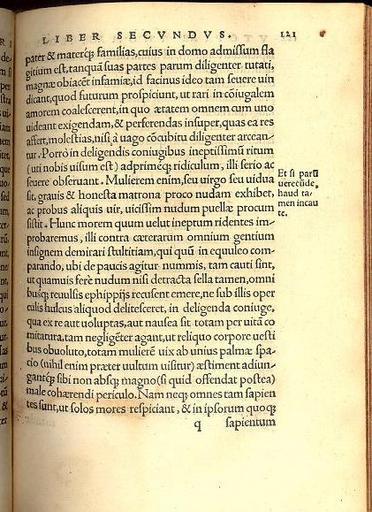 LIBER SECVNDVS. 121
pater & materq́; familias, cuius in domo admissum fla
gitium est, tanquã suas partes parum diligenter tutati,
magnæ obiacẽt infamiæ, id facinus ideo tam seuere uin
dicant, quod futurum prospiciunt, ut rari in cõiugalem
amorem coalescerent, in quo ætatem omnem cum uno
uideant exigendam, & perferendas insuper, quas ea res
affert, molestias, nisi à uago cõcubitu diligenter arcean-
tur. Porrò in deligendis coniugibus ineptissimũ ritum
(uti nobis uisum est) adprimeq́; ridiculum, illi serio ac
seuere obseruant. Mulierem enim, seu uirgo seu uidua
sit, grauis & honesta matrona proco nudam exhibet,
ac probus aliquis uir, uicissim nudum puellæ procum
sistit. Hunc morem quum uelut ineptum ridentes im-
probaremus, illi contra cæterarum omnium gentium
insignem demirari stultitiam, qui quũ in equuleo com-
parando, ubi de paucis agitur nummis, tam cauti sint,
ut quamuis ferè nudum nisi detracta sella tamen, omni
busq́; reuulsis ephippijs recusent emere, ne sub illis oper
culis hulcus aliquod delitesceret, in deligenda coniuge,
qua ex re aut uoluptas, aut nausea sit totam per uitã co
mitatura, tam negligẽter agant, ut reliquo corpore uesti
bus obuoluto, totam mulierẽ uix ab unius palmæ spa-
cio (nihil enim præter uultum uisitur) æstiment adiun-
gantq́; sibi non absq; magno (si quid offendat postea)
male cohærendi periculo. Nam neq; omnes tam sapien
tes sunt, ut solos mores respiciant, & in ipsorum quoq;
q sapientum
Et si parũ
uerecũde,
haud ta-
men incau
te.